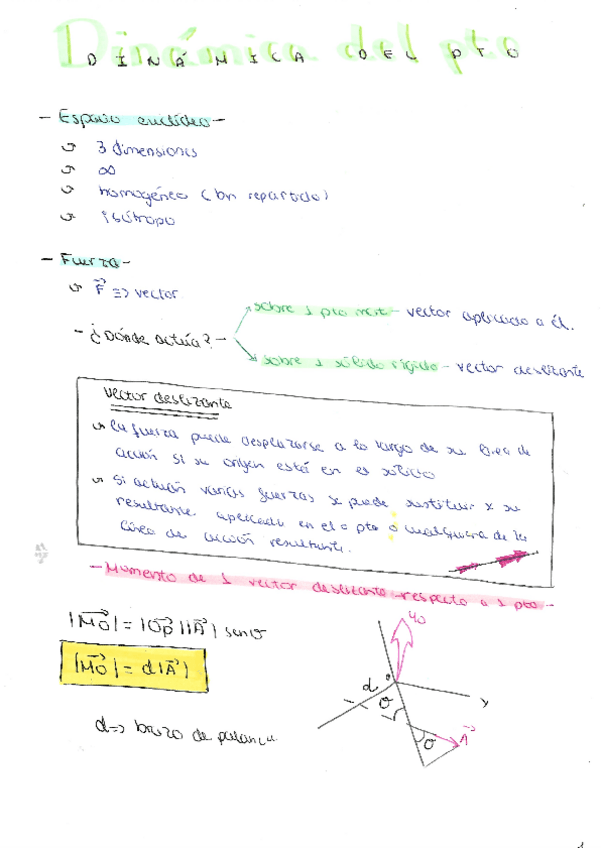 Dinámica del pto
DINÁMICA DEL PTO
- Espacio euclídeo -
3 dimensiones
∞
homogéneo (bn repartido)
isótropo
- Fuerza -
F⃗ => vector
sobre 1 pto mat - vector aplicado a él.
- ¿Dónde actúa? -
sobre 1 sólido rígido - vector deslizante
vector deslizante
la fuerza puede desplazarse a lo largo de su línea de
acción si su origen está en el sólido
si actúan varias fuerzas se puede sustituir x su
resultante, aplicada en el pto o cualquiera de la
línea de acción resultante.
- Momento de 1 vector deslizante respecto a 1 pto -
|M⃗O| = |O⃗P||A⃗| senθ
|M⃗O| = d|A⃗|
d => brazo de palanca
d
θ
θ
A⃗
1